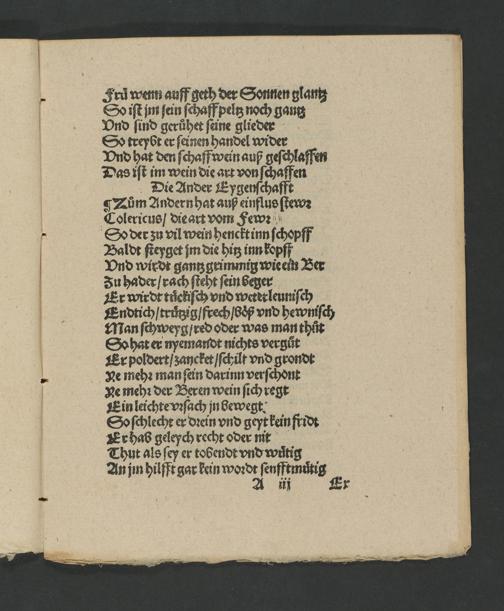 Frü wenn auff geth der Sonnen glantz
So ist jm sein schaff peltz noch gantz
Vnd sind gerühet seine glieder
So treybt er seinen handel wider
Vnd hat den schaff wein auß geschlaffen
Das ist im wein die art von schaffen
Die Ander Eygenschafft
¶ Züm Andern hat auß einflus stewr
Colericus / die art vom Fewr
So der zu vil wein henckt inn schopff
Baldt steyget jm die hitz inn kopff
Vnd wirdt gantz grimmig wie ein Ber
Zu hader / rach steht sein beger
Er wirdt tückisch vnd wetterleunisch
Endtich / trützig / frech / böß vnd hewnisch
Man schweyg / red oder was man thüt
So hat er nyemandt nichts vergüt
Er poldert / zancket / schilt vnd grondt
Ye mehr man sein darinn verschont
Ye mehr der Beren wein sich regt
Ein leichte vrsach jn bewegt
So schlecht er drein vnd geyt kein fridt
Er hab geleych recht oder nit
Thut als sey er tobendt vnd wütig
An jm hilfft gar kein wordt senfftmütig
A iij Er